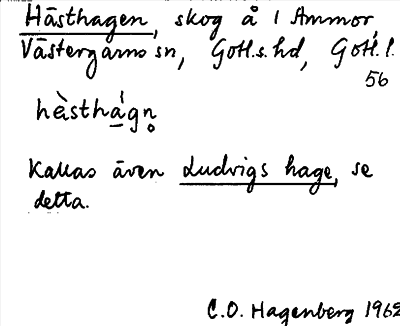 Hästhagen, skog å 1 Ammor,
Västergarns sn, Gotl.s. hd, Gotl. l.
56
hèsthá̱gn̥
Kallas även Ludvigs hage, se
detta.
C.O. Hagenberg 1962